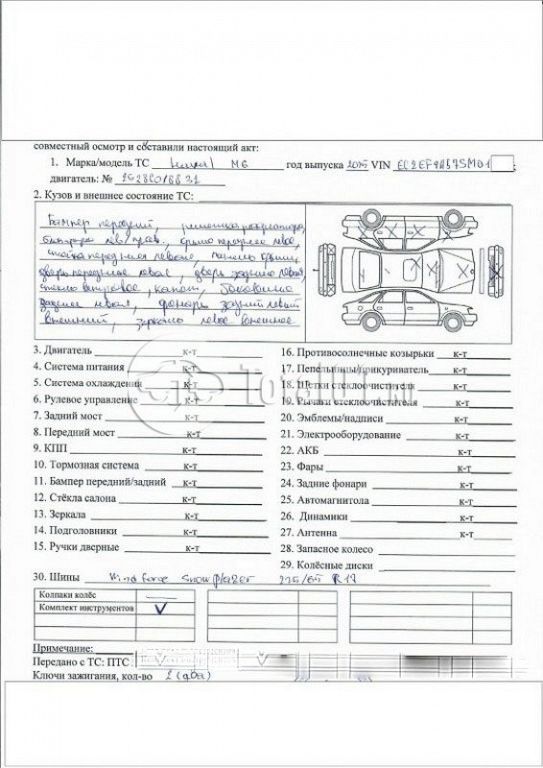 совместный осмотр и составили настоящий акт:
1. Марка/модель ТС Haval M6 год выпуска 2025 VIN
двигатель: №
2. Кузов и внешнее состояние ТС:
Бампер передний, решетка радиатора,
фары лев/прав, крыло переднее левое,
стойка передняя левая, панель крыши,
дверь передняя левая, дверь задняя левая,
стекло ветровое, капот, боковина
задняя левая, фонарь задний левый
внешний, зеркало левое внешнее
3. Двигатель к-т
4. Система питания к-т
5. Система охлаждения к-т
6. Рулевое управление к-т
7. Задний мост к-т
8. Передний мост к-т
9. КПП к-т
10. Тормозная система к-т
11. Бампер передний/задний к-т
12. Стёкла салона к-т
13. Зеркала к-т
14. Подголовники к-т
15. Ручки дверные к-т
16. Противосолнечные козырьки к-т
17. Пепельницы/прикуриватель к-т
18. Щетки стеклоочистителя к-т
19. Рычаги стеклоочистителя к-т
20. Эмблемы/надписи к-т
21. Электрооборудование к-т
22. АКБ к-т
23. Фары к-т
24. Задние фонари к-т
25. Автомагнитола к-т
26. Динамики к-т
27. Антенна к-т
28. Запасное колесо
29. Колёсные диски к-т
30. Шины Windforce Snowblazer 225/65 R 17
Колпаки колёс
Комплект инструментов V
Примечание:
Передано с ТС: ПТС
Ключи зажигания, кол-во 2 (два)